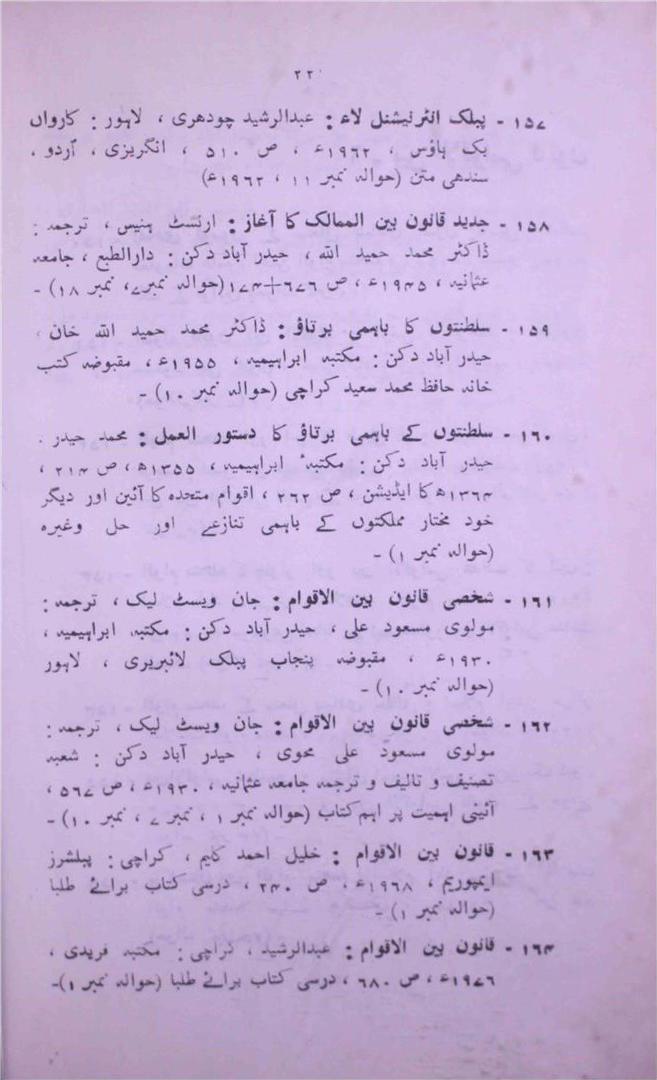 ۲۲
۱۵۷ - پبلک انٹرنیشنل لاء : عبدالرشید چودھری ، لاہور : کارواں
بک ہاؤس ، ۱۹۶۲ء ، ص ۵۱۰ ، انگریزی ، اردو ،
سندھی متن (حوالہ نمبر ۱۱ ، ۱۹۶۲ء)
۱۵۸ - جدید قانون بین الممالک کا آغاز : ارنسٹ ہنیس ، ترجمہ :
ڈاکٹر محمد حمید اللہ ، حیدر آباد دکن : دارالطبع ، جامعہ
عثمانیہ ، ۱۹۴۵ء ، ص ۶۷۶+۱۷۴ (حوالہ نمبر ۷ ، نمبر ۱۸) -
۱۵۹ - سلطنتوں کا باہمی برتاؤ : ڈاکٹر محمد حمید اللہ خان ،
حیدر آباد دکن : مکتبہ ابراہیمیہ ، ۱۹۵۵ء ، مقبوضہ کتب
خانہ حافظ محمد سعید کراچی (حوالہ نمبر ۱۰) -
۱۶۰ - سلطنتوں کے باہمی برتاؤ کا دستور العمل : محمد حیدر .
حیدر آباد دکن : مکتبۂ ابراہیمیہ ، ۱۳۵۵ھ ، ص ۲۱۴ ،
۱۳۶۴ھ کا ایڈیشن ، ص ۲۶۲ ، اقوام متحدہ کا آئین اور دیگر
خود مختار مملکتوں کے باہمی تنازعے اور حل وغیرہ
(حوالہ نمبر ۱) -
۱۶۱ - شخصی قانون بین الاقوام : جان ویسٹ لیک ، ترجمہ :
مولوی مسعود علی ، حیدر آباد دکن : مکتبہ ابراہیمیہ ،
۱۹۳۰ء ، مقبوضہ پنجاب پبلک لائبریری ، لاہور
(حوالہ نمبر ۱۰) -
۱۶۲ - شخصی قانون بین الاقوام : جان ویسٹ لیک ، ترجمہ :
مولوی مسعود علی محوی ، حیدر آباد دکن : شعبہ
تصنیف و تالیف و ترجمہ جامعہ عثمانیہ ، ۱۹۳۰ء ، ص ۵۶۷ ،
آئینی اہمیت پر اہم کتاب (حوالہ نمبر ۱ ، نمبر ۷ ، نمبر ۱۰) -
۱۶۳ - قانون بین الاقوام : خلیل احمد کلیم ، کراچی : پبلشرز
ایمپوریم ، ۱۹۶۸ء ، ص ۲۴۰ ، درسی کتاب برائے طلبا
(حوالہ نمبر ۱) -
۱۶۴ - قانون بین الاقوام : عبدالرشید ، کراچی : مکتبہ فریدی ،
۱۹۷۶ء ، ص ۶۸۰ ، درسی کتاب برائے طلبا (حوالہ نمبر ۱) -